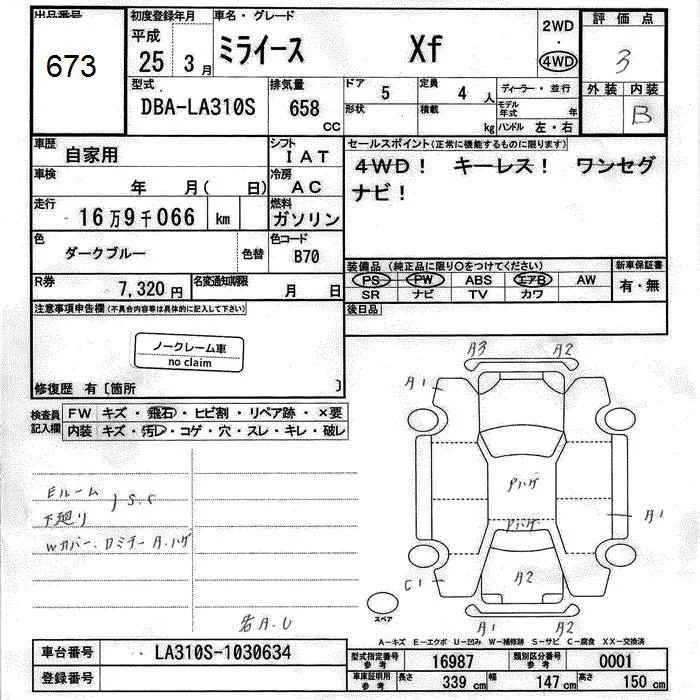 出品番号
673
初度登録年月
平成
25 3 月
車名・グレード
ミライース Xf
2WD
・
4WD
評価点
3
外装 内装
B
型式
DBA-LA310S
排気量
658
CC
ドア
5
定員
4 人
形状
積載
kg
ディーラー・並行
モデル年式 年
ハンドル 左・右
車歴
自家用
シフト
IAT
車検
年 月( 日)
冷房
AC
走行
16万9千066 km
燃料
ガソリン
色
ダークブルー
色替
色コード
B70
R券
7,320 円
名変通知期限
月 日
セールスポイント(正常に機能するものに限ります)
4WD! キーレス! ワンセグ
ナビ!
装備品(純正品に限り○をつけてください)
PS PW ABS エアB AW
SR ナビ TV カワ
新車保証書
有・無
後日品
注意事項申告欄(不具合内容等は具体的に記入して下さい)
ノークレーム車
no claim
修復歴 有〔箇所 〕
検査員
記入欄
FW キズ・飛石・ヒビ割・リペア跡・×要
内装 キズ・汚レ・コゲ・穴・スレ・キレ・破レ
Eルーム
下廻り
S.C
Wカバー、Dミラー A.ハゲ
若A.U
A3 A2
A1
Pハゲ
Pハゲ
A1
C1
A2
A1 A2
スペア
A-キズ E-エクボ U-凹み W-補修跡 S-サビ C-腐食 XX-交換済
車台番号
LA310S-1030634
登録番号
型式指定番号
参考
16987
類別区分番号
参考
0001
車庫証明用
参考
長さ
339 cm
幅
147 cm
高さ
150 cm